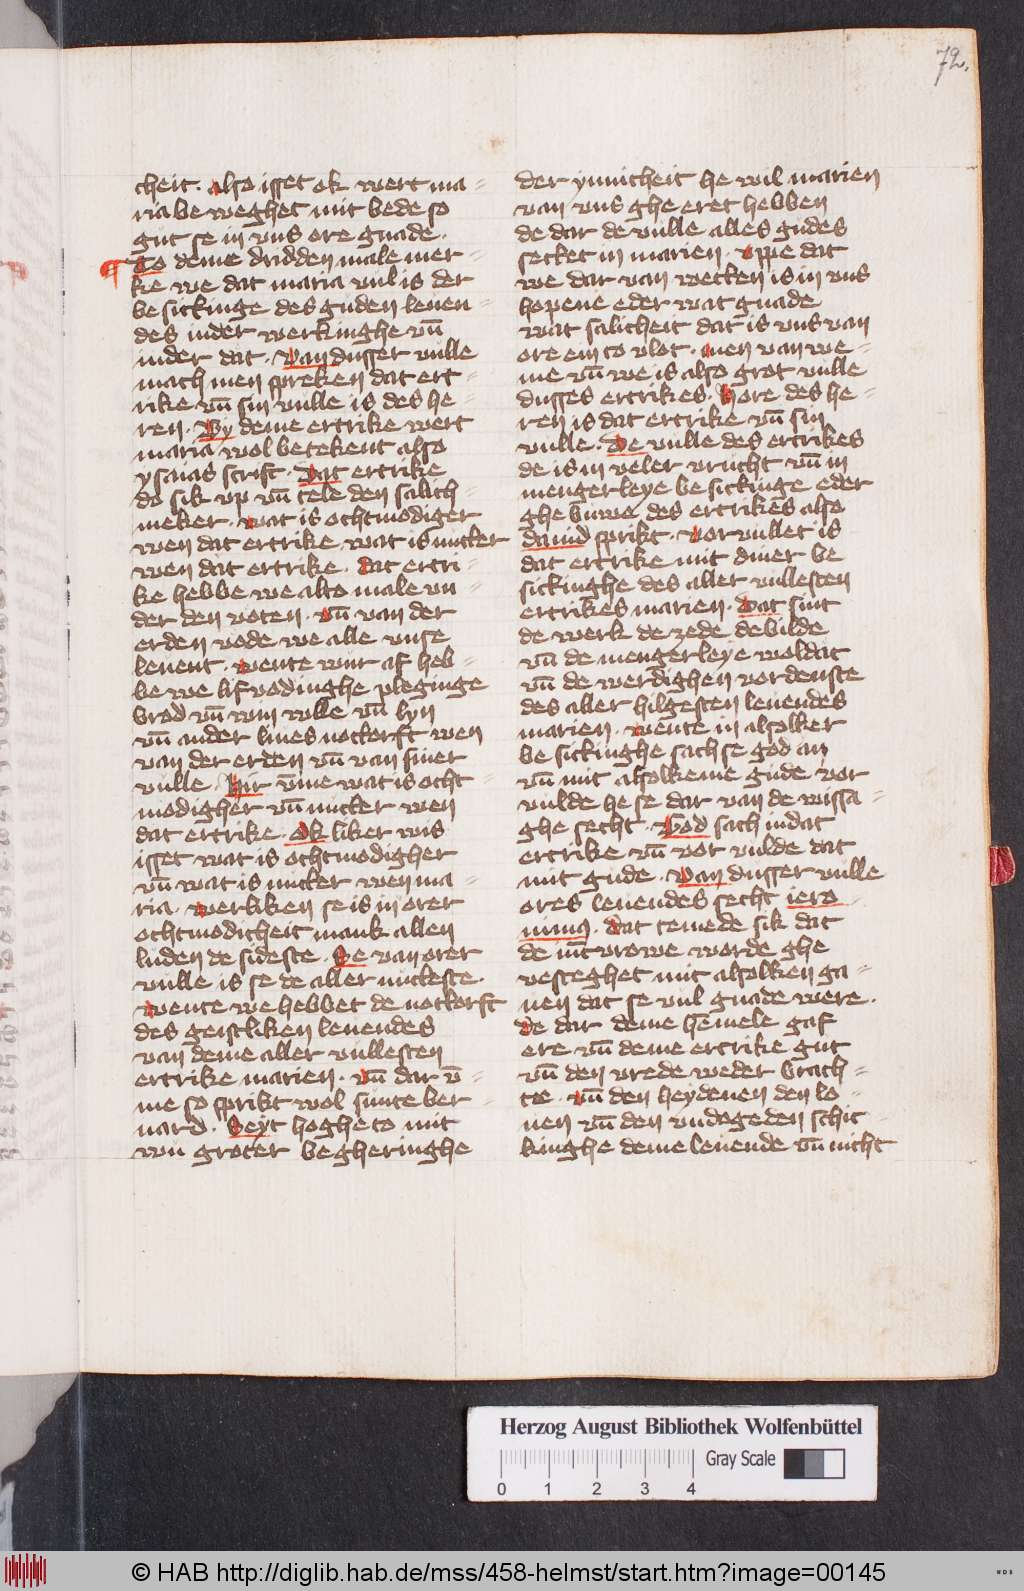 72.
cheit. also isset ok wert ma=
ria be weghet mit bede so
gut se in vns ore gnade.
To deme drudden male mer=
ke we dat maria vul is der
besickinge des guden leuen=
des inder werkinghe vn̄
inder dat. Van dusser vulle
mach men spreken dat ert=
rike vn̄ sin vulle is des he=
ren. By deme ertrike wert
maria wol betekent also
ysaias scrift. Dat ertrike
do sik vp vn̄ tele den salich=
meker. wat is othmodiger
wen dat ertrike wat is nutter
wen dat ertrike. dat ertri=
ke hebbe we alto male vn=
der den voten. vn̄ van der
erden vode we alle vnse
leuent. wente wur af heb=
be we lifvodinghe pleginge
brod vn̄ win wlle vn̄ lyn
vn̄ ander liues nottorft wen
van der erden vn̄ van siner
vulle. Hir v̄me wat is oth=
modigher vn̄ nutter wen
dat ertrike. Ok liker wis
isset wat is othmodigher
vn̄ wat is nutter wen ma=
ria. werliken se is in orer
othmodicheit mank allen
luden de sideste. Se van orer
vulle is se de aller nutteste.
wente we hebbet de nottorft
des geistliken leuendes
van deme aller vullesten
ertrike marien. vn̄ dar v̄=
me so sprikt wol sunte ber=
nard. Seyt hoghe to mit
wu groter begheringhe
der ynnicheit he wil marien
van vns gheeret hebben
de dar de vulle alles gudes
settet in marien. vppe dat
we dar van wetten is in vns
hopene eder wat gnade
wat salicheit dat is vns van
ore em to vlot. men van we=
me vn̄ we is also grot vulle
dusses ertrikes. Hore des he=
ren is dat ertrike vn̄ sin
vulle. De vulle des ertrikes
de is in veler vrucht vn̄ in
mengerleye besickinge eder
ghe buwe des ertrikes also
dauid sprikt. vorvullet is
dat ertrike mit diner be
sickinghe des aller vullesten
ertrikes marien. Dat sint
de werk de zede de bilde
vn̄ de mengerleye woldat
vn̄ de werdighen vordenste
des aller hilgesten leuendes
marien. wente in alsolker
be sickinghe sach se god an
vn̄ mit alsolkeme gude vor
vulde he se dar van de wissa=
ghe secht. God sach in dat
ertrike vn̄ vor vulde dat
mit gude. Van dusser vulle
ores leuendes secht iero
nimꝰ. dat temede sik dat
de iūcvrowe worde ghe
vesteghet mit alsolken ga=
uen dat se vul gnade were.
De dar deme hēmele gaf
ere vn̄ deme ertrike gut
vn̄ den vrede weder brach=
te. vn̄ den heydenen den lo=
uen vn̄ den vndogeden schic
kinghe deme leuende vn̄ nicht
Herzog August Bibliothek Wolfenbüttel
Gray Scale
0 1 2 3 4
© HAB http://diglib.hab.de/mss/458-helmst/start.htm?image=00145